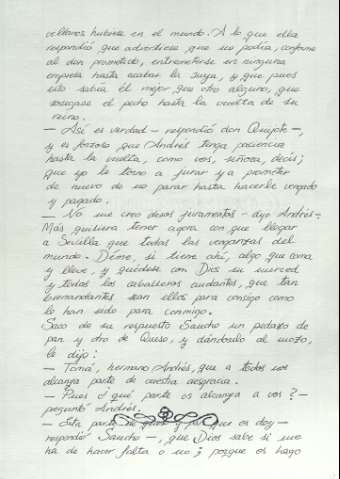 villanos hubiese en el mundo. A lo que ella
respondió que advirtiese que no podía, conforme
al don prometido, entremeterse en ninguna
empresa hasta acabar la suya, y que pues
esto sabía él mejor que otro alguno, que
sosegase el pecho hasta la vuelta de su
reino.
— Así es verdad — respondió don Quijote —,
y es forzoso que Andrés tenga paciencia
hasta la vuelta, como vos, señora, decís;
que yo le torno a jurar y a prometer
de nuevo de no parar hasta hacerle vengado
y pagado.
— No me creo desos juramentos — dijo Andrés —.
Más quisiera tener agora con que llegar
a Sevilla que todas las venganzas del
mundo. Déme, si tiene ahí, algo que coma
y lleve, y quédese con Dios su merced
y todos los caballeros andantes, que tan
bienandantes sean ellos para consigo como
lo han sido para conmigo.
Sacó de su repuesto Sancho un pedazo de
pan y otro de Queso, y dándoselo al mozo,
le dijo:
— Tomá, hermano Andrés, que a todos nos
alcanza parte de vuestra desgracia.
— Pues ¿ qué parte os alcanza a vos ? —
preguntó Andrés.
— Esta parte de queso y pan que os doy —
respondió Sancho —, que Dios sabe si me
ha de hacer falta o no ; porque os hago